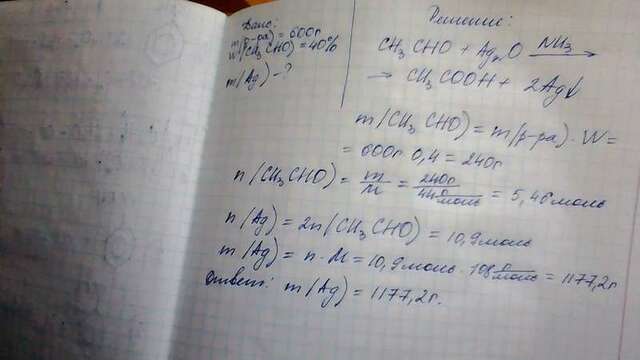 Дано:
m(р-ра) = 600г
W(CH₃CHO) = 40%
m(Ag) - ?
Решение:
CH₃CHO + Ag₂O NH₃ →
→ CH₃COOH + 2Ag↓
m(CH₃CHO) = m(р-ра) · W =
= 600г · 0,4 = 240г
n(CH₃CHO) = m/M = 240г / 44 г/моль = 5,46моль
n(Ag) = 2n(CH₃CHO) = 10,9моль
m(Ag) = n · M = 10,9моль · 108 г/моль = 1177,2г
Ответ: m(Ag) = 1177,2г.